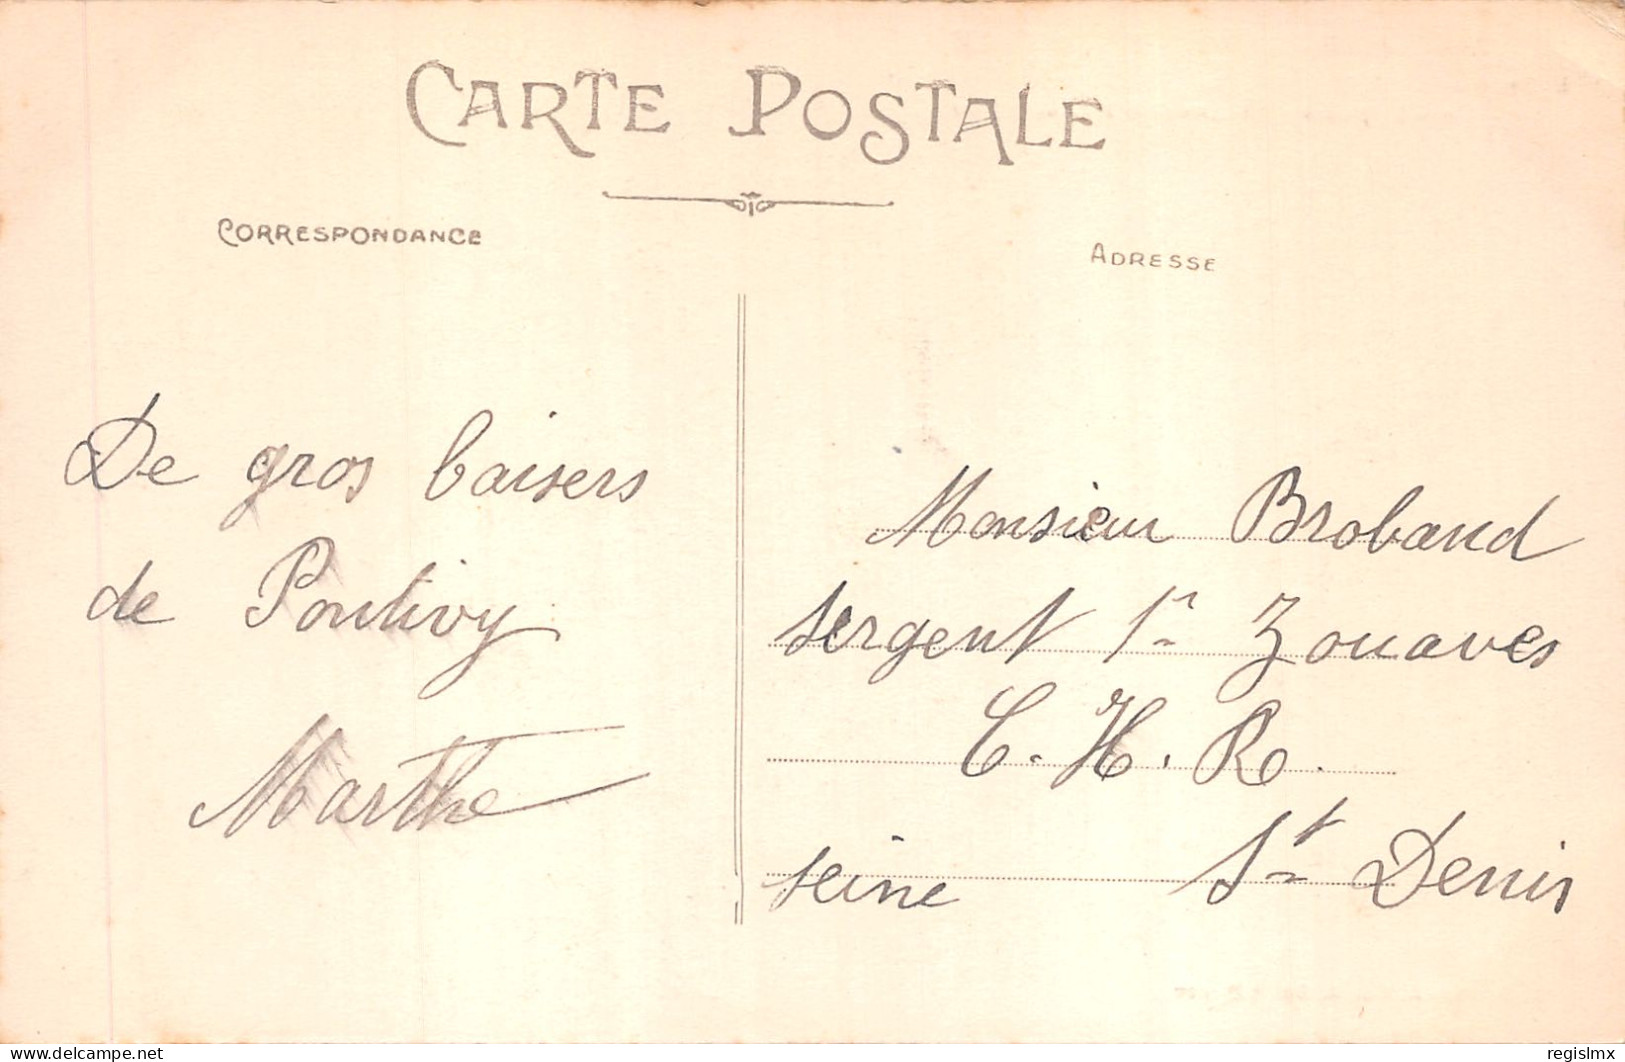 CARTE POSTALE
CORRESPONDANCE
ADRESSE
De gros baisers
de Pontivy
Marthe
Monsieur Broband
sergent 1r Zouaves
C. H. R.
seine St Denis
www.delcampe.net
regislmx